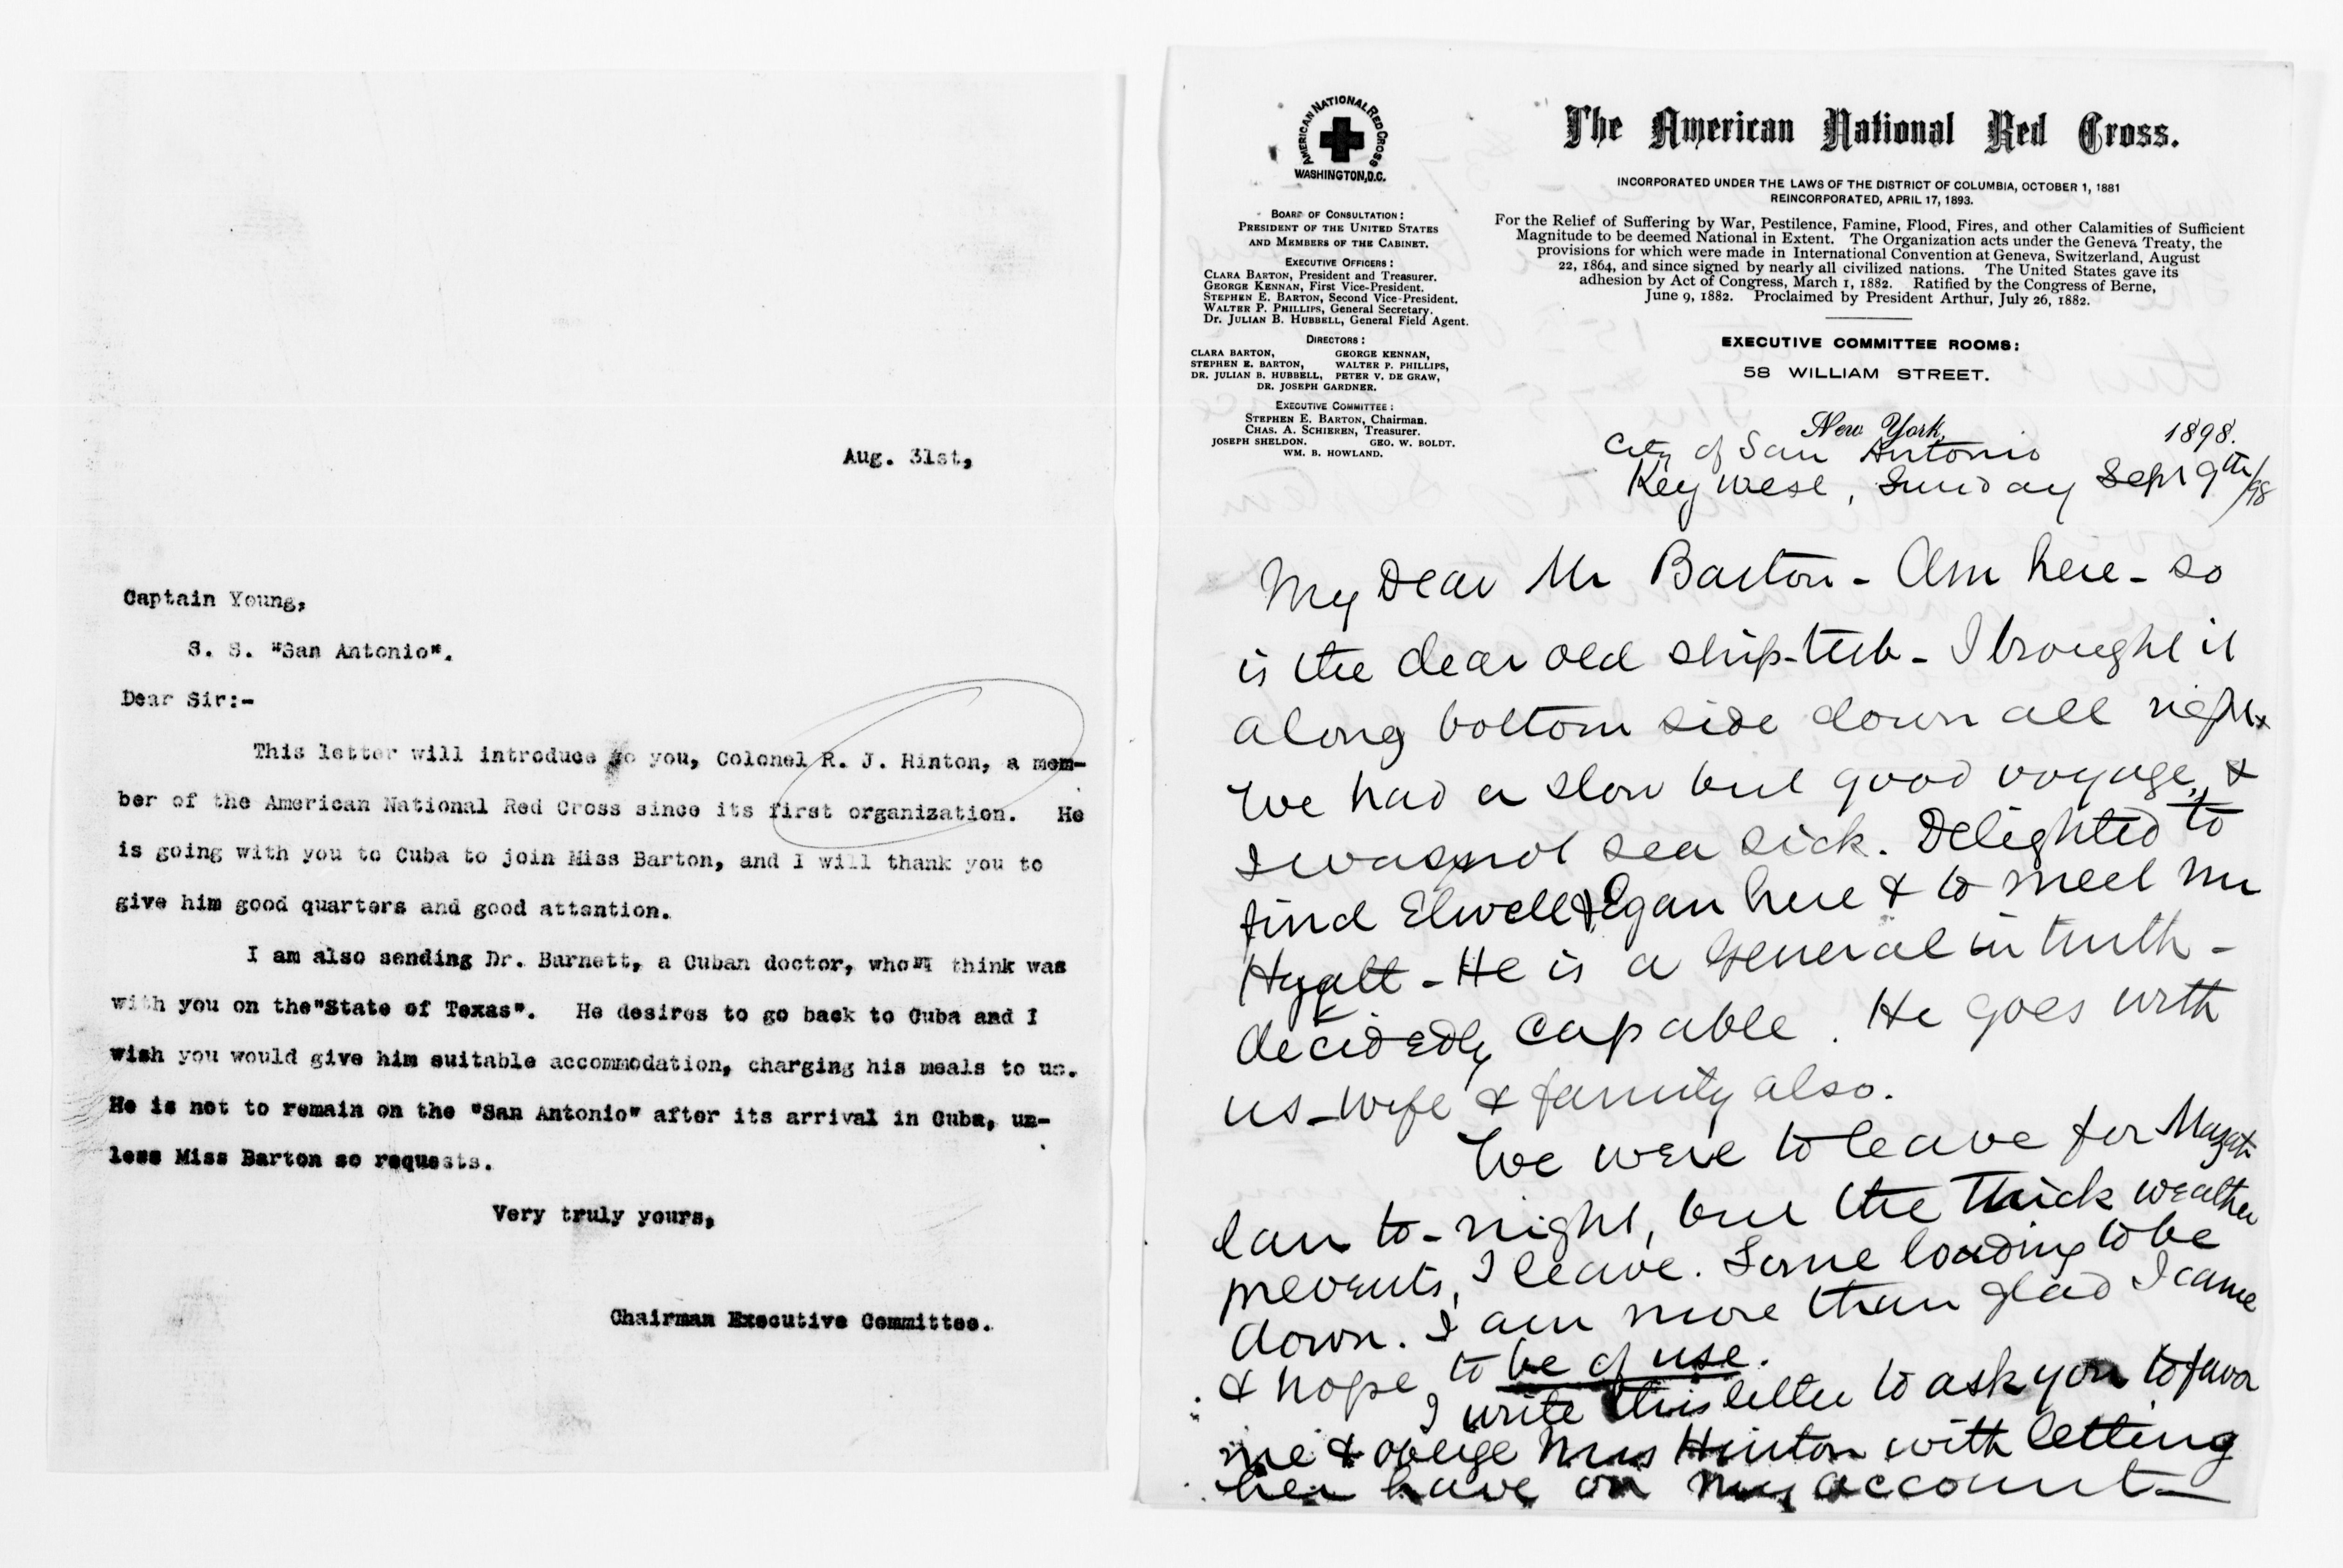 Aug. 31st,
Captain Young,
S. S. "San Antonio".
Dear Sir:-
This letter will introduce to you, Colonel R. J. Hinton, a mem-
ber of the American National Red Cross since its first organization. He
is going with you to Cuba to join Miss Barton, and I will thank you to
give him good quarters and good attention.
I am also sending Dr. Barnett, a Cuban doctor, whom I think was
with you on the"State of Texas". He desires to go back to Cuba and I
wish you would give him suitable accommodation, charging his meals to us.
He is not to remain on the "San Antonio" after its arrival in Cuba, un-
less Miss Barton so requests.
Very truly yours,
Chairman Executive Committee.
AMERICAN NATIONAL RED CROSS
WASHINGTON, D.C.
BOARD OF CONSULTATION:
PRESIDENT OF THE UNITED STATES
AND MEMBERS OF THE CABINET.
EXECUTIVE OFFICERS:
CLARA BARTON, President and Treasurer.
GEORGE KENNAN, First Vice-President.
STEPHEN E. BARTON, Second Vice-President.
WALTER P. PHILLIPS, General Secretary.
Dr. JULIAN B. HUBBELL, General Field Agent.
DIRECTORS:
CLARA BARTON, GEORGE KENNAN,
STEPHEN E. BARTON, WALTER P. PHILLIPS,
DR. JULIAN B. HUBBELL, PETER V. DE GRAW,
DR. JOSEPH GARDNER.
EXECUTIVE COMMITTEE:
STEPHEN E. BARTON, Chairman.
CHAS. A. SCHIEREN, Treasurer.
JOSEPH SHELDON. GEO. W. BOLDT.
WM. B. HOWLAND.
The American National Red Cross.
INCORPORATED UNDER THE LAWS OF THE DISTRICT OF COLUMBIA, OCTOBER 1, 1881
REINCORPORATED, APRIL 17, 1893.
For the Relief of Suffering by War, Pestilence, Famine, Flood, Fires, and other Calamities of Sufficient
Magnitude to be deemed National in Extent. The Organization acts under the Geneva Treaty, the
provisions for which were made in International Convention at Geneva, Switzerland, August
22, 1864, and since signed by nearly all civilized nations. The United States gave its
adhesion by Act of Congress, March 1, 1882. Ratified by the Congress of Berne,
June 9, 1882. Proclaimed by President Arthur, July 26, 1882.
EXECUTIVE COMMITTEE ROOMS:
58 WILLIAM STREET.
New York, 1898.
City of San Antonio
Key West, Sunday Sept 9th/98
My Dear Mr Barton - Am here - so
is the dear old ship-tub - I brought it
along bottom side down all right
We had a slow but good voyage, &
I was not sea sick. Delighted to
find Elwell & Egan here & to meet Mr
Hyatt - He is a General in truth -
decidedly capable. He goes with
us - wife & family also.
We were to leave for Mazat-
lan to-night, but the thick weather
prevents, I leave. Some loading to be
down. I am more than glad I came
& hope to be of use.
I write this letter to ask you to favor
me & oblige Mrs Hinton with letting
her have on my account -